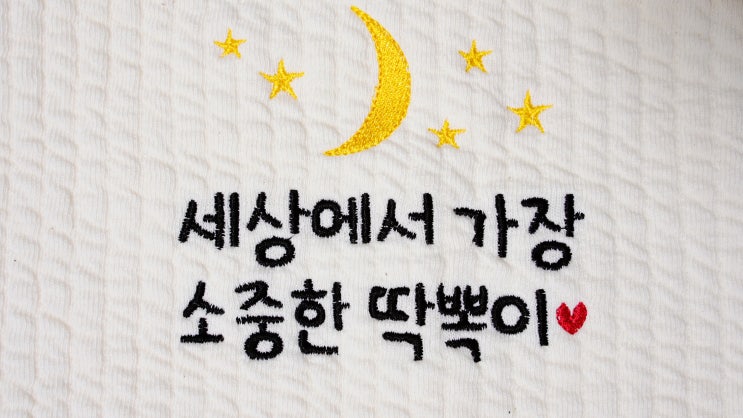 세상에서 가장
소중한 딱뽁이